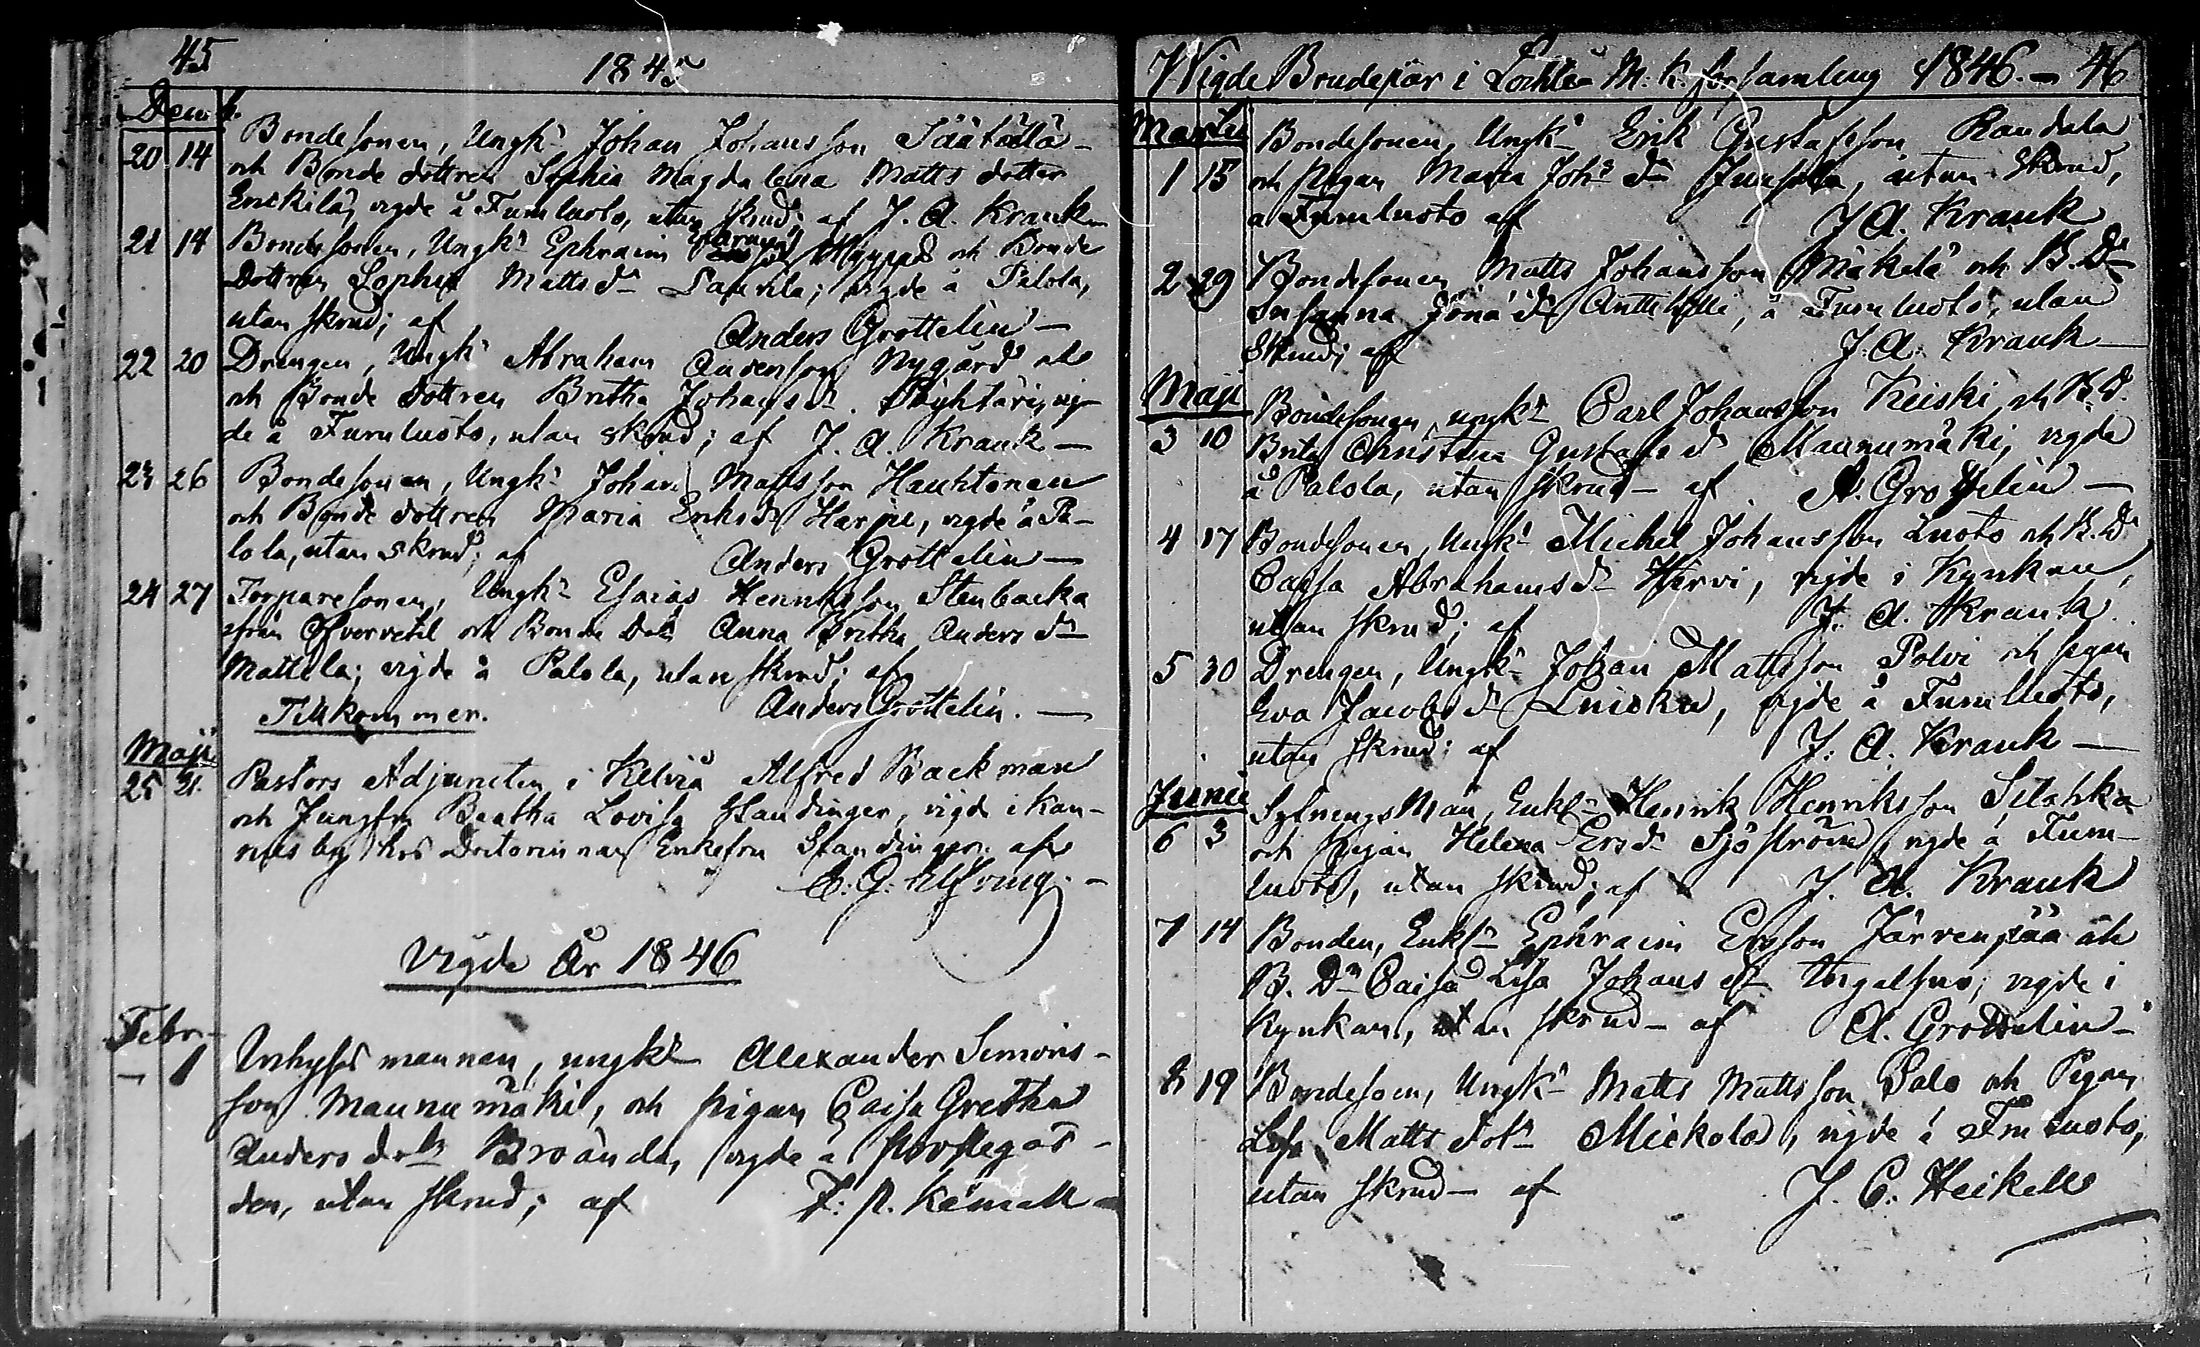 45
1845
Decemb.
20 14 Bondesonen, Ungk. Johan Johansson Säätälä
och Bonde dottren Sophia Magdalena Matts dotter
Erickilä, vigde å Furuluoto, utan skrud; af J. A. Krank
21 14 Bondesonen, Ungk. Ephraim och Bonde
Dottren Sophia Mattsd. Saukla; vigde å Palola,
utan skrud; af Anders Grottelin
22 20 Drengen, Ungk. Abraham Andersson Nygård
och Bonde dottren Britha Johansd. Pöyhtäri, vig-
de å Furuluoto, utan skrud; af J. A. Krank
23 26 Bondesonen, Ungk. Johan Mattsson Hauhtonen
och Bonde dottren Maria Eriksd. Harju, vigde å Pa-
lola, utan skrud; af Anders Grottelin
24 27 Torparesonen, Ungk. Esaias Henriksson Stenbacka
från Öfvervetil och Bonde Dott. Anna Britha Andersd.
Mattila; vigde å Palola, utan skrud; af
Tillkommer. Anders Grottelin.
Maji
25 21. Pastors Adjuncten i Kelviå Alfred Backman
och Jungfru Beatha Lovisa Standinger, vigde i Kan-
nus by hos Doctorinnan Enkefru Standinger. af
C. G. Elfving.
Vigde År 1846
Febr.
1 Inhyses mannen, ungk. Alexander Simons-
son Maunumäki, och pigan Caisa Gretha
Anders dott. Broända, vigde å Prostegår-
den, utan skrud; af
Wigde Brudepar i Lochteå M. K. församling 1846. 46
Martii
Bondesonen, Ungk. Erik Gustafsson Randala
1 15 och Pigan Maria Joh. d. Junsala, utan Skrud,
å Furuluoto af J A. Krank
2 29 Bondesonen Matts Johansson Mäkelä och B. D.
Susanna Jona d. Anttikälli, å Furuluoto, utan
skrud; af J. A. Krank
Maji
Bondesonen, ungk. Carl Johansson Keiski, och B. D.
3 10 Brita Christina Gustafs d. Maunumäki, vigde
å Palola, utan skrud af A. Grottelin
4 17 Bondesonen, Ungk. Michel Johansson Luoto och B. D.
Caisa Abrahamsd. Hirvi, vigde i Kyrkan,
utan skrud; af J. A. Krank
5 30 Drengen, Ungk. Johan Mattsson Polvi och pigan
Eva Jacobs d. Luiska, vigde å Furuluoto,
utan skrud; af J. A. Krank
Junii
Sytnings Man, Enkl. Henrik Henriksson Silahka
6 3 och Pigan Helena Ersd. Sjöström, vigde å Furu-
luoto, utan skrud; af J. A. Krank
7 14 Bonden, Enkl. Ephraim Ersson Järvenpää och
B. D. Caisa Lisa Johans d. Ingelsus; vigde i
Kyrkan, utan skrud af A. Grottelin
8 19 Bondesoen, Ungk. Matts Mattsson Palo och Pigan
Lisa Matts dot. Mickola, vigde å Fruluoto,
utan skrud af J. C. Heikell